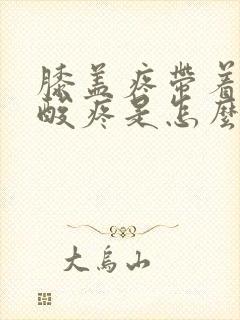 膝盖疼带着
酸疼是怎麼
大烏山